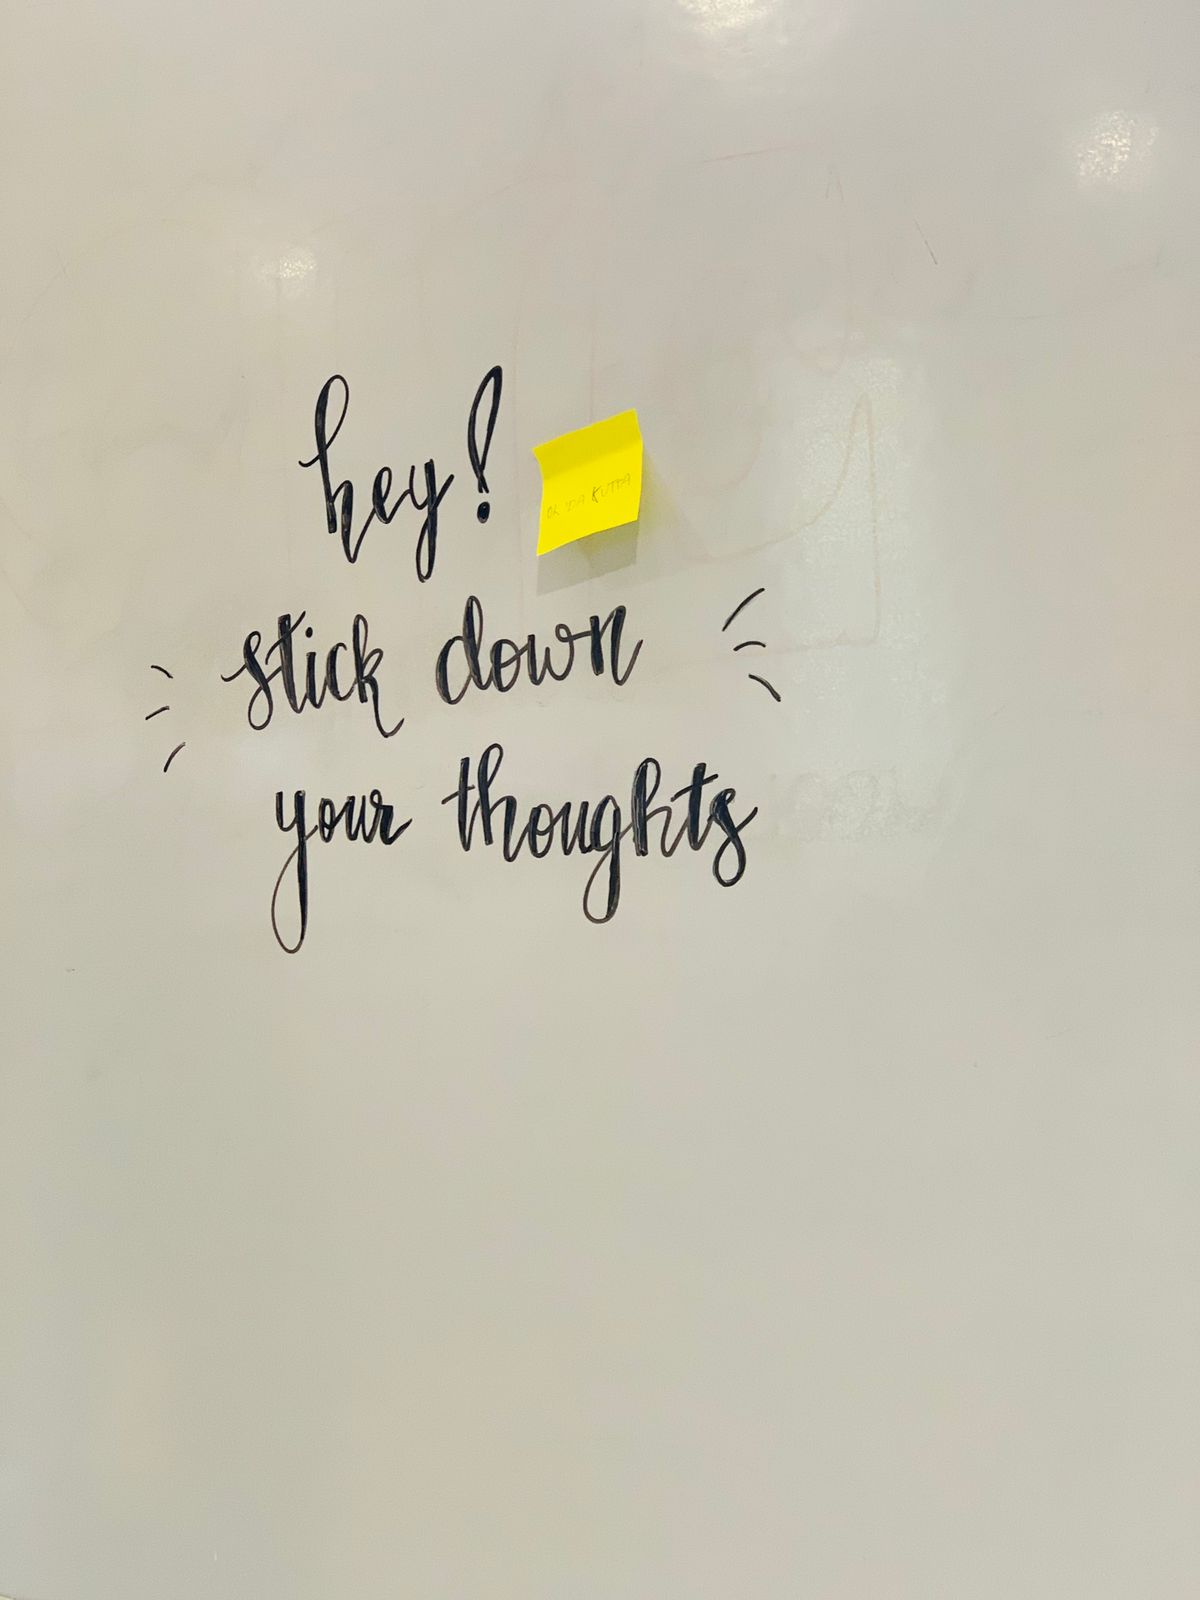 hey!
OK DA KUTTA
stick down
your thoughts